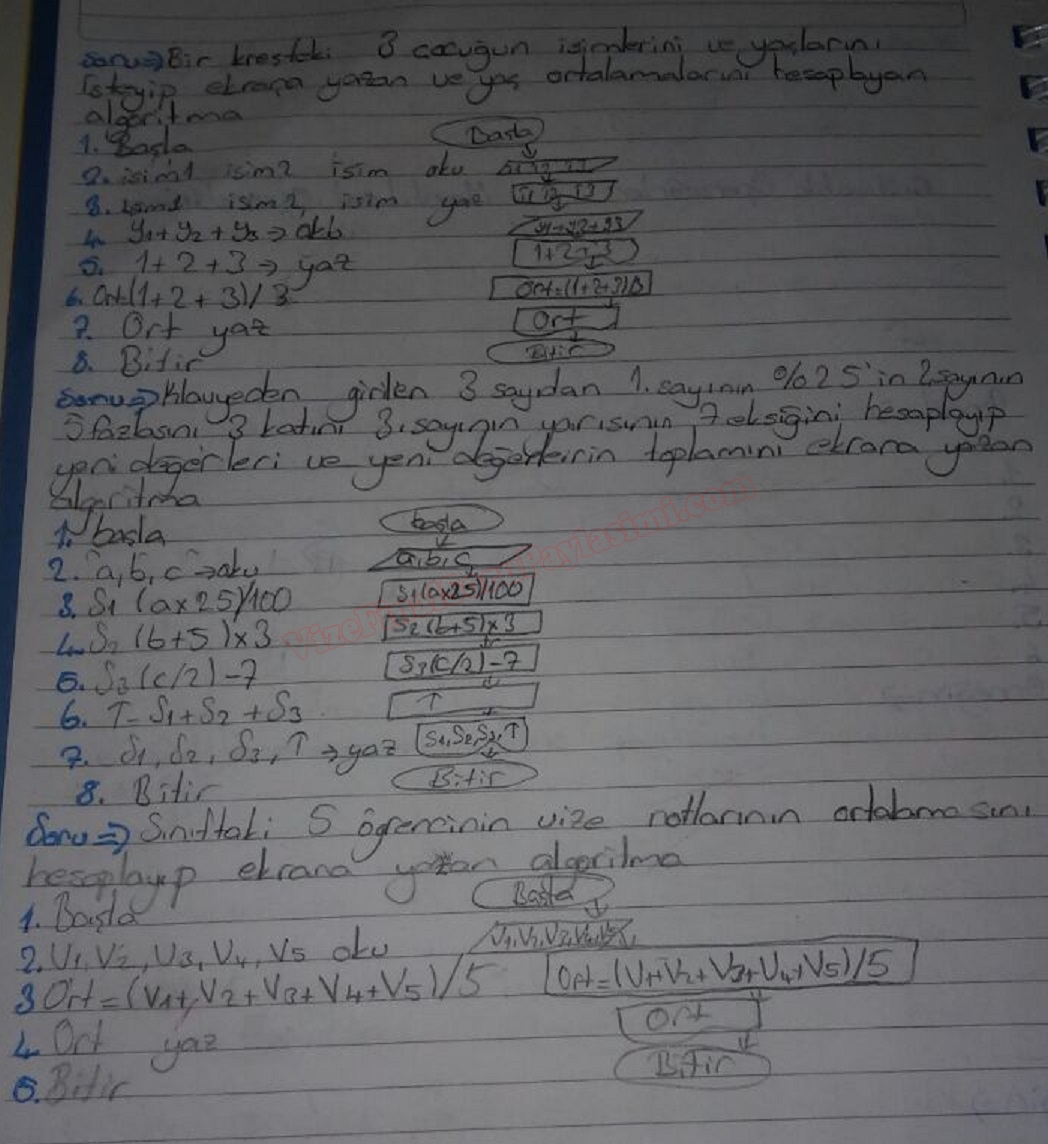 Soru⇒Bir kresteki 3 cocuğun isimlerini ve yaşlarını
İsteyip ekrana yazan ve yaş ortalamalarını hesaplayan
algoritma
1. Başla
2. isim1 isim2 isim oku
3. isim1 isim2, isim yaz
4. y1+y2+y3⇒okb
5. 1+2+3→yaz
6. Ort(1+2+3)/3
7. Ort yaz
8. Bitir
Başla
y1+y2+y3
1+2+3
Ort=(1+2+3)/3
Ort
Bitir
Soru⇒Klavyeden girilen 3 sayıdan 1. sayının %25'in 2.sayının
5 fazlasını 3 katını 3. sayının yarısının 7 eksiğini hesaplayıp
yeni değerleri ve yeni değerleirin toplamını ekrana yazan
algoritma
1. başla
2. a,b,c→oku
3. S1 (ax25)/100
4. S2 (b+5)x3
5. S3 (c/2)-7
6. T- S1+S2+S3
7. S1, S2, S3, T→yaz
8. Bitir
başla
a,b,c
S1(ax25)/100
S2(b+5)x3
S3(c/2)-7
T
S1,S2,S3,T
Bitir
VizeFinalPaylasimi.com
Soru⇒) Sınıftaki 5 öğrencinin vize notlarının ortalamasını
hesaplayıp ekrana yazan algoritma
1. Başla
2. V1, V2, V3, V4, V5 oku
3 Ort=(V1+V2+V3+V4+V5)/5
4. Ort yaz
5. Bitir
Başla
V1,V2,V3,V4,V5
Ort=(V1+V2+V3+V4+V5)/5
Ort
Bitir